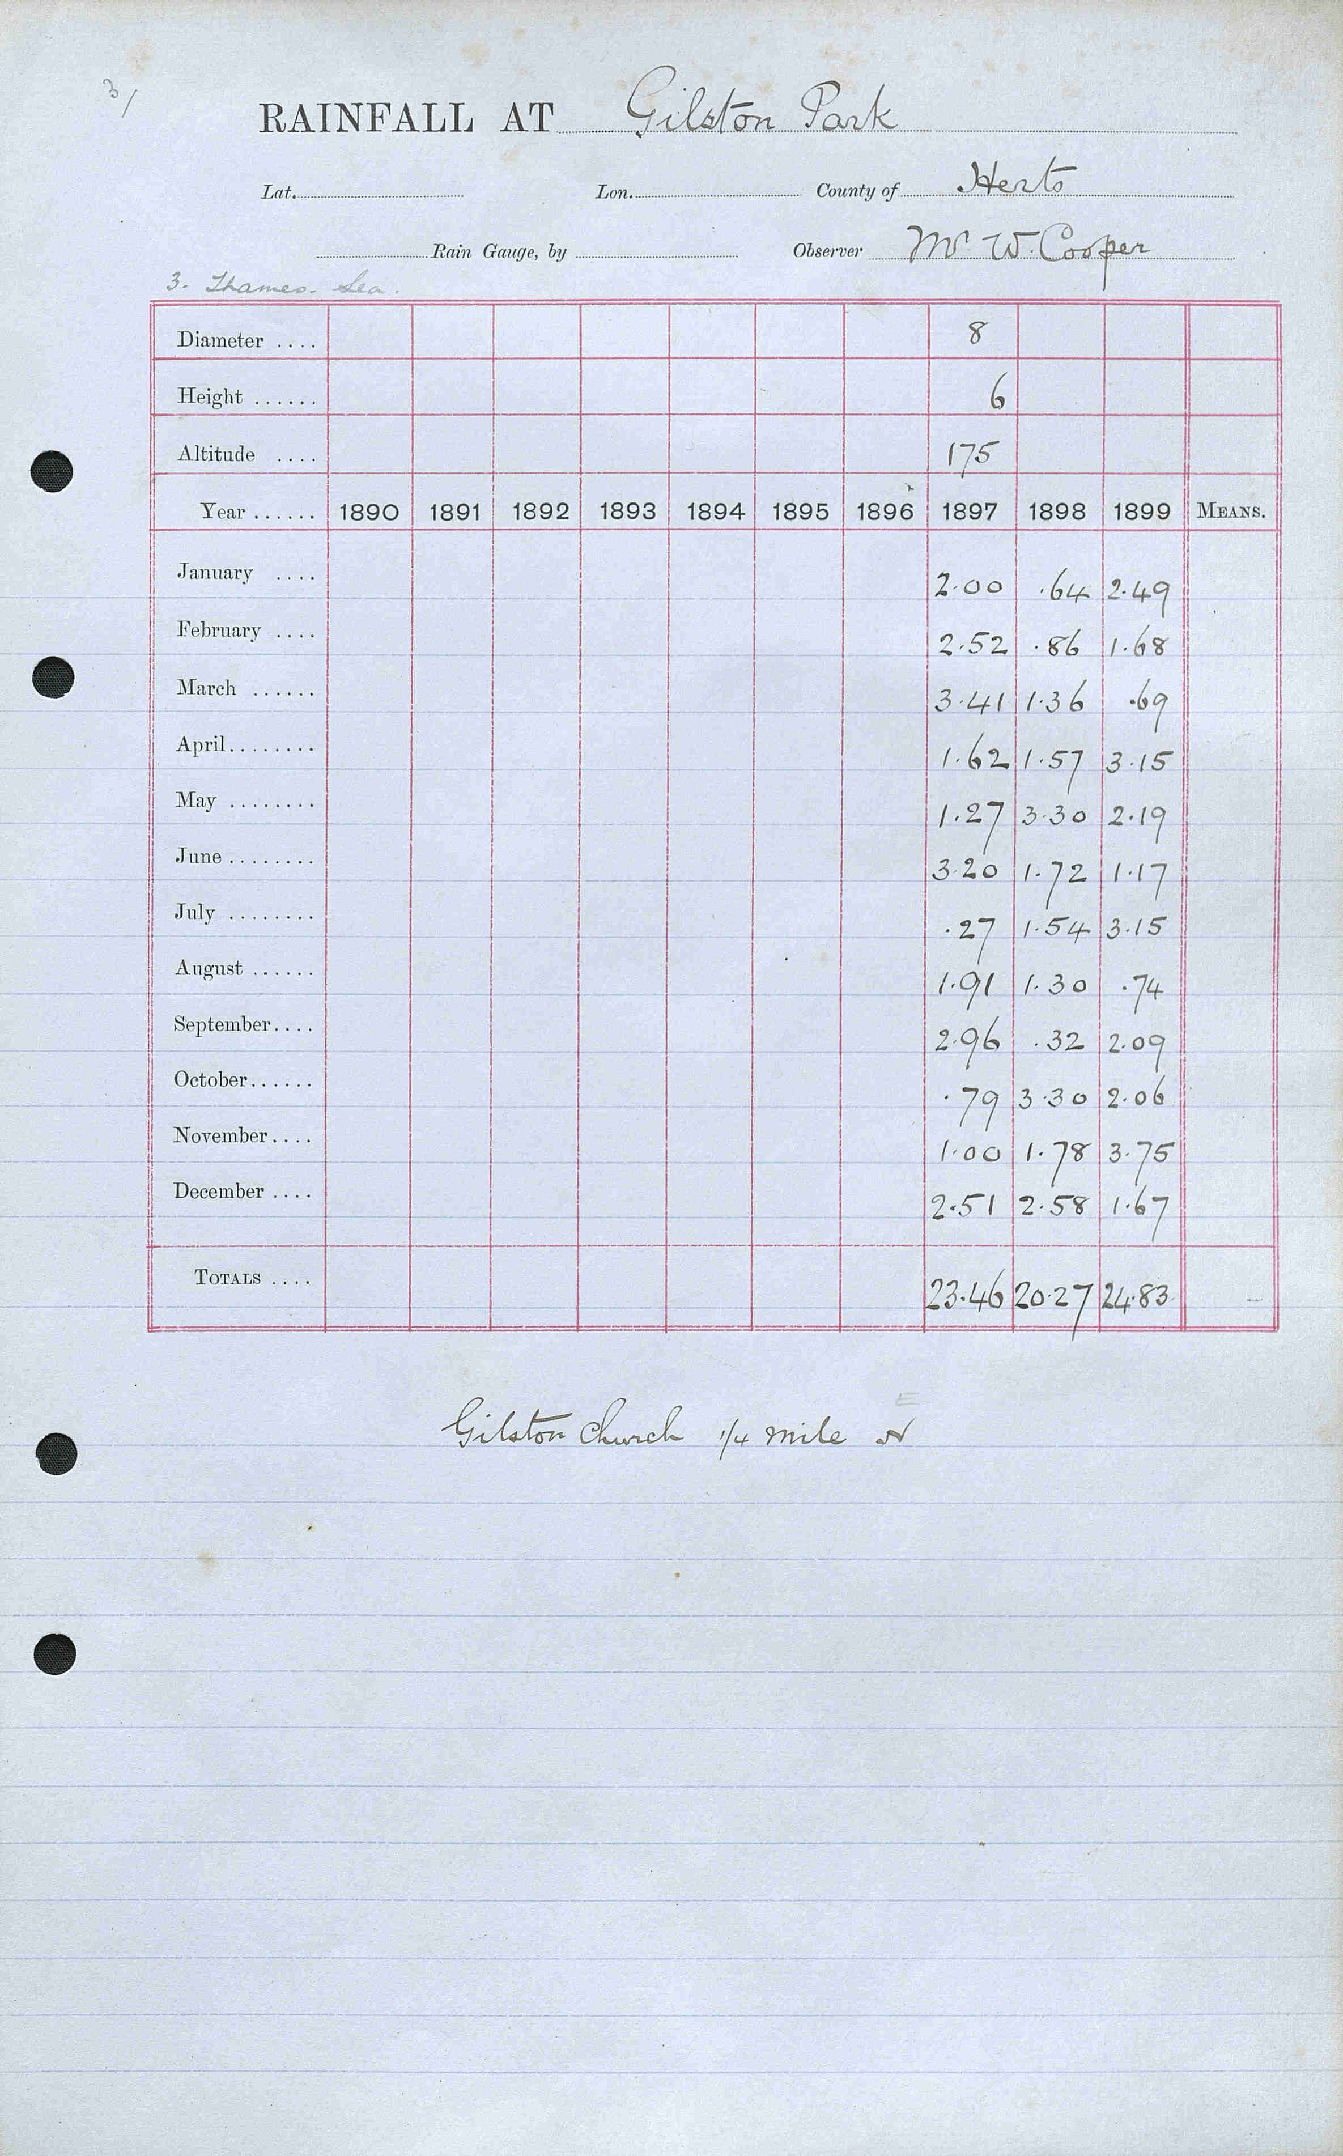 3/
RAINFALL AT Gilston Park
Lat. Lon. County of Herts
Rain Gauge, by Observer Mr W. Cooper
3. Thames. Lea.
Diameter .... 8
Height ...... 6
Altitude .... 175
Year ...... 1890 1891 1892 1893 1894 1895 1896 1897 1898 1899 MEANS.
January .... 2.00 .64 2.49
February .... 2.52 .86 1.68
March ...... 3.41 1.36 .69
April........ 1.62 1.57 3.15
May ........ 1.27 3.30 2.19
June ........ 3.20 1.72 1.17
July ........ .27 1.54 3.15
August ...... 1.91 1.30 .74
September.... 2.96 .32 2.09
October...... .79 3.30 2.06
November.... 1.00 1.78 3.75
December .... 2.51 2.58 1.67
TOTALS .... 23.46 20.27 24.83
E
Gilston Church 1/4 mile N